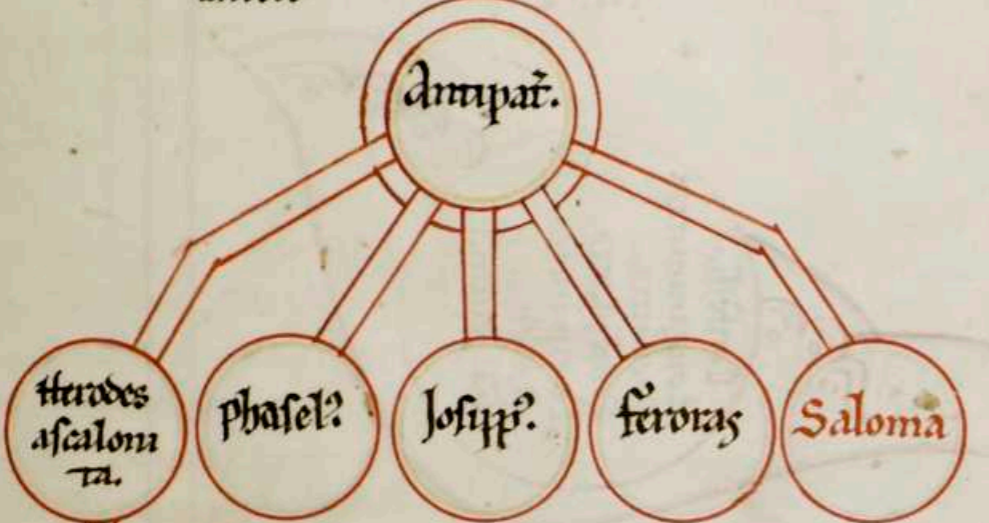 Antipat̃.
Herodes
aſcaloni
ta.
phaſelꝰ
Joſippꝰ.
feroras
Saloma